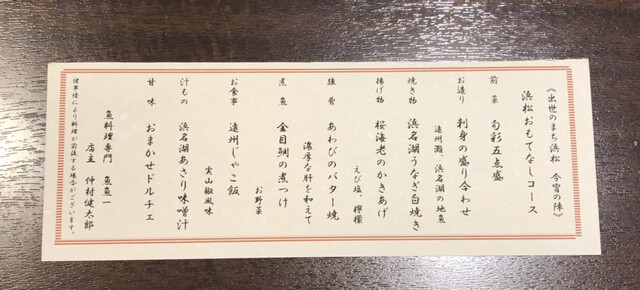 《出世のまち浜松 今宵の陣》
浜松おもてなしコース
前菜 旬彩五点盛
お造り 刺身の盛り合わせ
遠州灘、浜名湖の地魚
焼き物 浜名湖うなぎ白焼き
揚げ物 桜海老のかきあげ
えび塩、檸檬
強肴 あわびのバター焼
濃厚な肝を和えて
煮魚 金目鯛の煮つけ
お野菜
お食事 遠州じゃこ飯
実山椒風味
汁もの 浜名湖あさり味噌汁
甘味 おまかせドルチェ
魚料理専門 魚魚一
店主 仲村健太郎
諸事情により料理が前後する場合がございます。